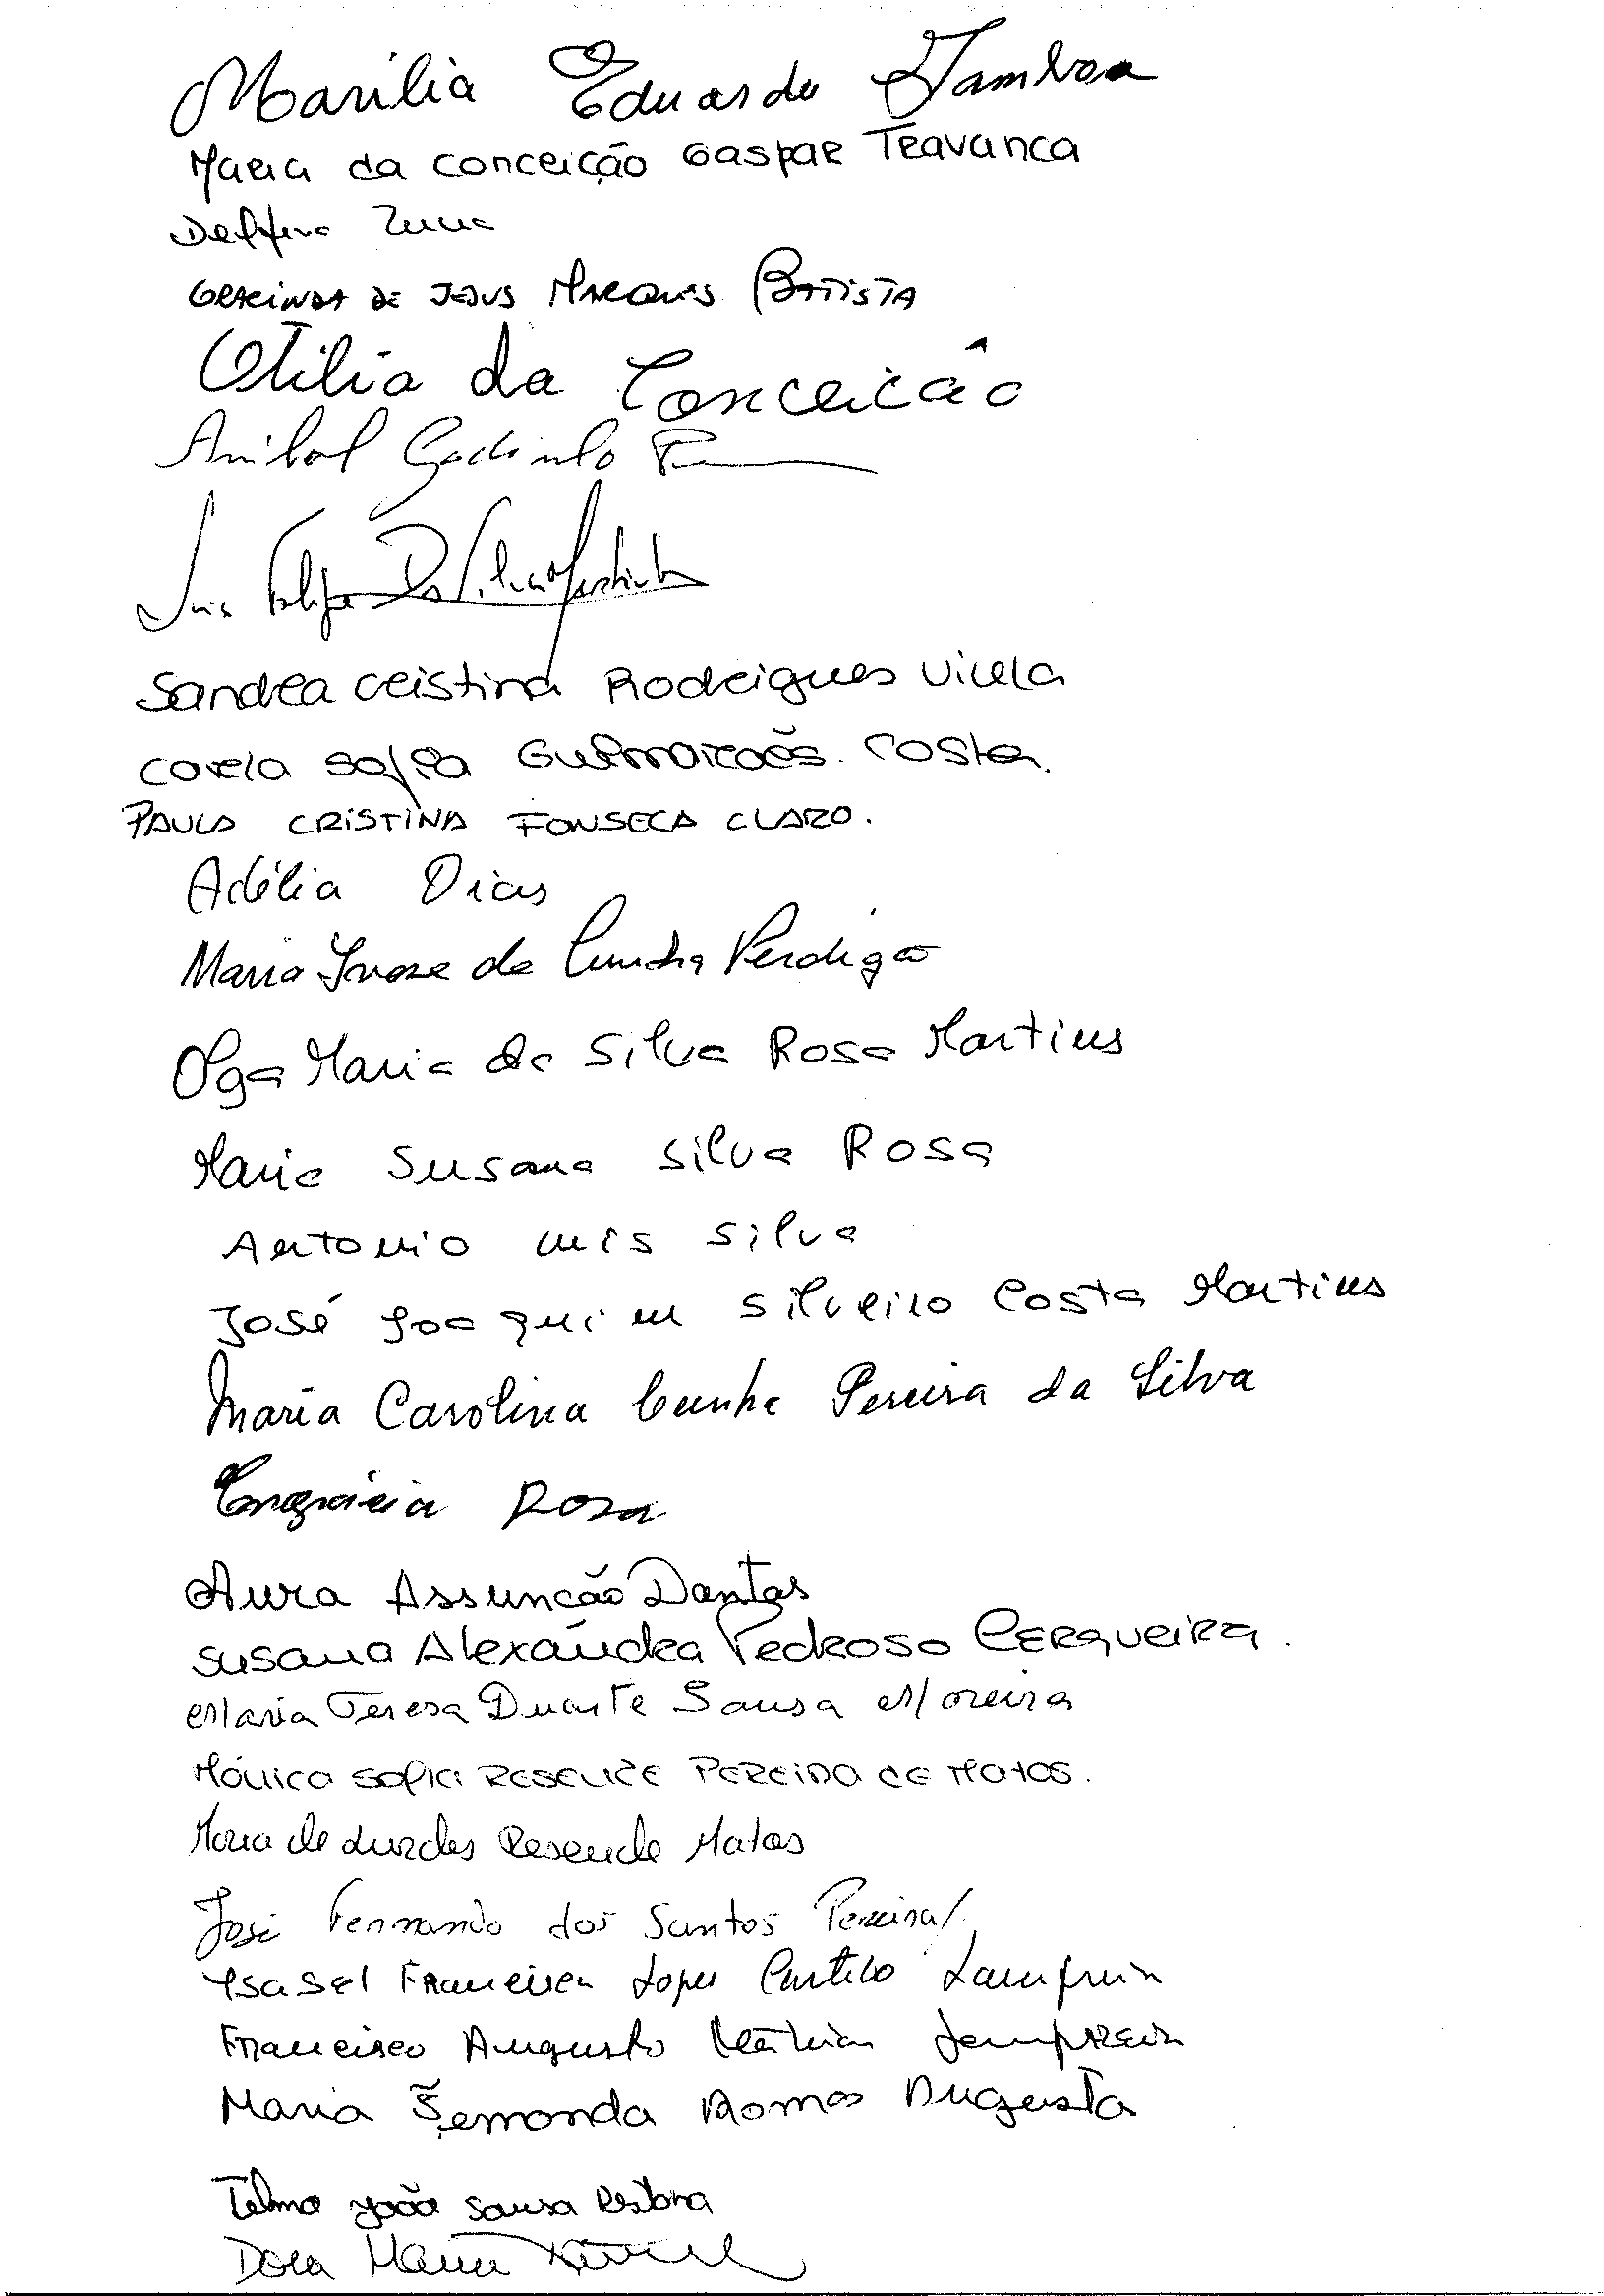 Marilia Eduarda Gamboa
Maria da Conceição Gaspar Travanca
Delfina
GRACINDA DE JESUS MARQUES BATISTA
Otilia da Conceicão
Anibal Godinho
Luis Felipe Da Silva Martinho
Sandra Cristina Rodrigues Vilela
Carla Sofia Guimarães. Costa.
PAULA CRISTINA FONSECA CLARO.
Adélia Dias
Maria Ivone da Cunha Perdigão
Olga Maria da Silva Rosa Martins
Maria Susana Silva Rosa
Antonio Luis Silva
José Joaquim Silveiro Costa Martins
Maria Carolina Cunha Pereira da Silva
Engrácia Rosa
Aura Assuncão Dantas
Susana Alexandra Pedroso Cerqueira.
Maria Teresa Duarte Sousa Moreira
Mónica Sofia RESENDE PEREIRA DE MATOS.
Maria de Lurdes Resende Matos
José Fernando dos Santos Pereira
Isabel Francisca Lopes Castelo Lampreia
Francisco Augusto Lampreia
Maria Fernanda Ramos Augusta
Telma João Sousa
Dora Maria